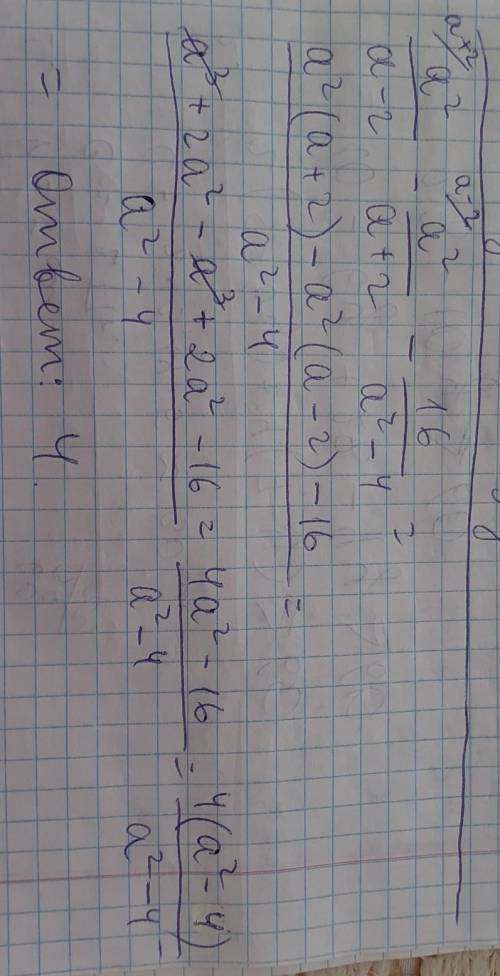 a+2/ a² / a-2 - a-2/ a² / a+2 - 16 / a²-4 =
a²(a+2) - a²(a-2) - 16 / a²-4 =
a³ + 2a² - a³ + 2a² - 16 / a²-4 = 4a² - 16 / a²-4 = 4(a²-4) / a²-4 =
= Ответ: 4.